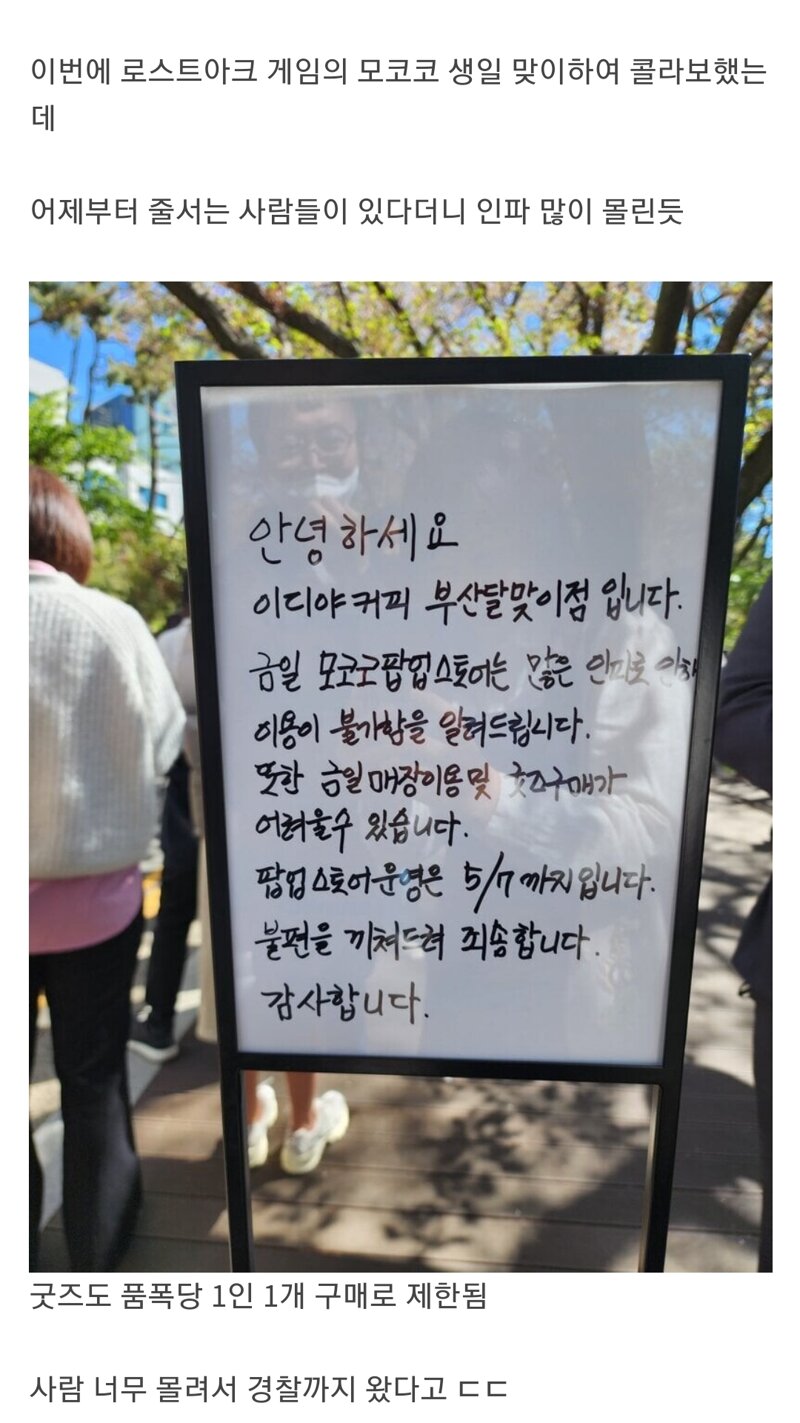 이번에 로스트아크 게임의 모코코 생일 맞이하여 콜라보했는
데
어제부터 줄서는 사람들이 있다더니 인파 많이 몰린듯
안녕하세요
이디야커피 부산달맞이점 입니다.
금일 모코코팝업스토어는 많은 인파로 인해
이용이 불가함을 알려드립니다.
또한 금일매장이용및 굿즈구매가
어려울수 있습니다.
팝업스토어운영은 5/7까지입니다.
불편을 끼쳐드려 죄송합니다.
감사합니다.
굿즈도 품폭당 1인 1개 구매로 제한됨
사람 너무 몰려서 경찰까지 왔다고 ㄷㄷ